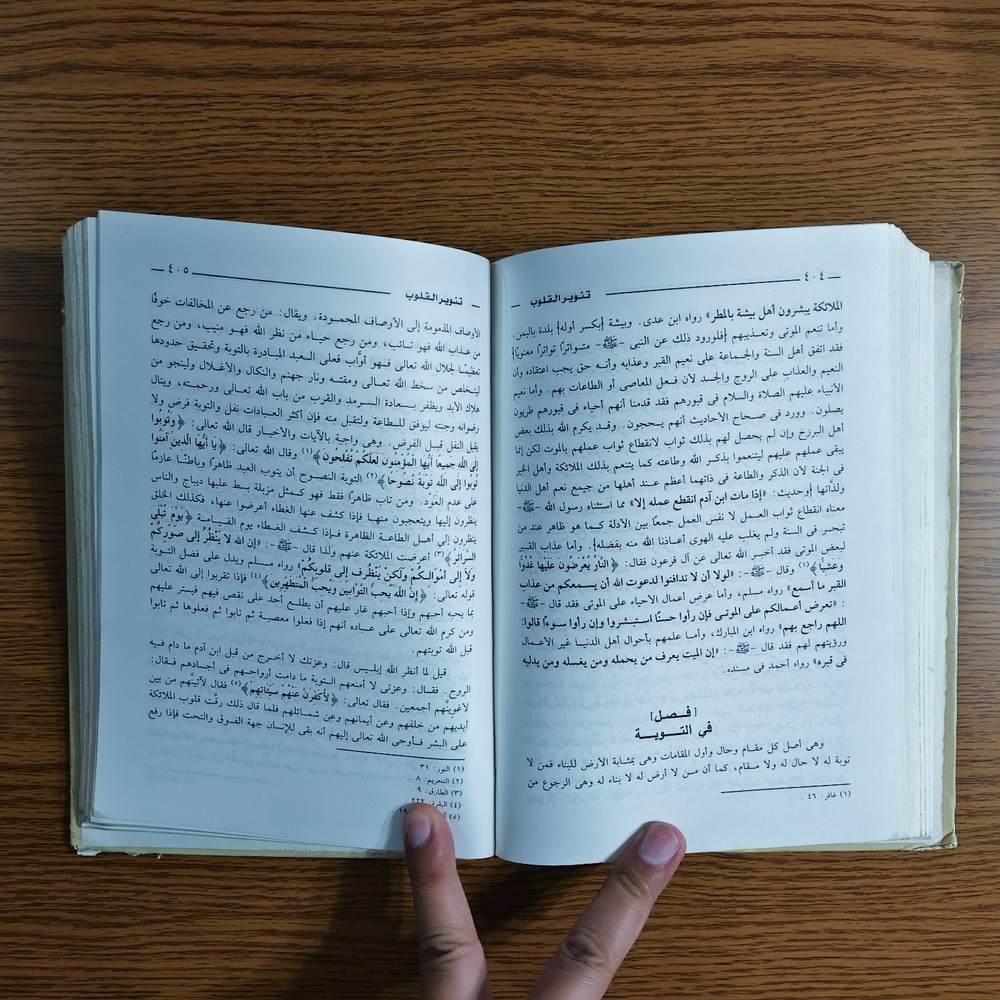 ٤٠٤ تنوير القلوب
الملائكة يبشرون أهل بيشة بالمطر» رواه ابن عدى. وبيشة [بكسر أوله] بلدة باليمن.
وأما تنعم الموتى وتعذيبهم [فلورود ذلك عن النبى -ﷺ- متواترًا تواترًا معنويًا]
فقد اتفق أهل السنة والجماعة على نعيم القبر وعذابه وأنه حق يجب اعتقاده وأن
النعيم والعذاب على الروح والجسد لأن فعل المعاصى أو الطاعات بهم. وأما نعيم
الأنبياء عليهم الصلاة والسلام فى قبورهم فقد قدمنا أنهم أحياء فى قبورهم طريون
يصلون. وورد فى صحاح الأحاديث أنهم يحجون. وقد يكرم الله بذلك بعض
أهل البرزخ وإن لم يحصل لهم بذلك ثواب لانقطاع ثواب عملهم بالموت لكن إنما
يبقى عملهم عليهم ليتنعموا بذكر الله وطاعته كما يتنعم بذلك الملائكة وأهل الخير
فى الجنة لأن الذكر والطاعة فى ذاتهما أعظم عند أهلها من جميع نعم أهل الدنيا
ولذَّاتها [وحديث: «إذا مات ابن آدم انقطع عمله إلا» مما استثناه رسول الله -ﷺ-
معناه انقطاع ثواب العمل لا نفس العمل جمعًا بين الأدلة كما هو ظاهر عند من
تبحر فى السنة ولم يغلب عليه الهوى أعاذنا الله منه بفضله]. وأما عذاب القبر
لبعض الموتى فقد أخبر الله تعالى عن آل فرعون فقال: ﴿النَّارُ يُعْرَضُونَ عَلَيْهَا غُدُوًّا
وَعَشِيًّا﴾(١) وقال -ﷺ-: «لولا أن لا تدافنوا لدعوت الله أن يسمعكم من عذاب
القبر ما أسمع» رواه مسلم، وأما عرض أعمال الأحياء على الموتى فقد قال -ﷺ-
: «تعرض أعمالكم على الموتى فإن رأوا حسنًا استبشروا وإن رأوا سوءًا قالوا:
اللهم راجع بهم» رواه ابن المبارك، وأما علمهم بأحوال أهل الدنيا غير الأعمال
ورؤيتهم لهم فقد قال -ﷺ-: «إن الميت يعرف من يحمله ومن يغسله ومن يدليه
فى قبره» رواه أحمد فى مسنده.
[فصل]
في التوبة
وهى أصل كل مقام وحال وأول المقامات وهى بمثابة الأرض للبناء فمن لا
توبة له لا حال له ولا مقام، كما أن من لا أرض له لا بناء له وهى الرجوع من
(١) غافر: ٤٦ .
تنوير القلوب ٤٠٥
الأوصاف المذمومة إلى الأوصاف المحمودة. ويقال: من رجع عن المخالفات خوفًا
من عذاب الله فهو تائب، ومن رجع حياء من نظر الله فهو منيب، ومن رجع
تعظيمًا لجلال الله تعالى فهو أوَّاب فعلى العبد المبادرة بالتوبة وتحقيق حدودها
ليتخلص من سخط الله تعالى ومقته ونار جهنم والنكال والأغلال ولينجو من
هلاك الأبد ويظفر بسعادة السرمد والقرب من باب الله تعالى ورحمته، وينال
رضوانه وجنته ليوفق للطاعة ولتقبل منه فإن أكثر العبادات نفل والتوبة فرض ولا
يقبل النفل قبل الفرض. وهى واجبة بالآيات والأخبار قال الله تعالى: ﴿وَتُوبُوا
إِلَى اللَّهِ جَمِيعًا أَيُّهَا الْمُؤْمِنُونَ لَعَلَّكُمْ تُفْلِحُونَ﴾(١) وقال الله تعالى: ﴿يَا أَيُّهَا الَّذِينَ آمَنُوا
تُوبُوا إِلَى اللَّهِ تَوْبَةً نَّصُوحًا﴾(٢) التوبة النصوح أن يتوب العبد ظاهرًا وباطنًا عازمًا
على عدم العَوْد. ومن تاب ظاهرًا فقط فهو كمثل مزبلة بسط عليها ديباج والناس
ينظرون إليها ويتعجبون منها فإذا كشف عنها الغطاء أعرضوا عنها، فكذلك الخلق
ينظرون إلى أهل الطاعة الظاهرة فإذا كشف الغطاء يوم القيامة ﴿يَوْمَ تُبْلَى
السَّرَائِرُ﴾(٣) أعرضت الملائكة عنهم ولذا قال -ﷺ-: «إن الله لا يَنظُرُ إلى صوركم
ولا إلى أموالكم ولكن يَنظُر إلى قلوبكم» رواه مسلم ويدل على فضل التوبة
قوله تعالى: ﴿إِنَّ اللَّهَ يُحِبُّ التَّوَّابِينَ وَيُحِبُّ الْمُتَطَهِّرِينَ﴾(٤) فإذا تقربوا إلى الله
بما يحبه أحبهم وإذا أحبهم غار عليهم أن يطلع أحد على نقص فيهم فيستر عليهم
ومن كرم الله تعالى على عباده أنهم إذا فعلوا معصية ثم تابوا ثم فعلوها ثم تابوا
قبل الله توبتهم.
قيل لما أنظر الله إبليس قال: وعزتك لا أخرج من قبل ابن آدم ما دام فيه
الروح. فقال: وعزتى لا أمنعهم التوبة ما دامت أرواحهم فى أجسادهم فقال:
لأغوينَّهم أجمعين. فقال تعالى: ﴿لأُكَفِّرَنَّ عَنْهُمْ سَيِّئَاتِهِمْ﴾(٥) فقال لآتينَّهم من بين
أيديهم من خلفهم وعن أيمانهم وعن شمائلهم فلما قال ذلك رقَّت قلوب الملائكة
على البشر فأوحى الله تعالى إليهم أنه بقى للإنسان جهة الفوق والتحت فإذا رفع
(١) النور: ٣١ .
(٢) التحريم: ٨ .
(٣) الطارق: ٩ .
(٤) البقرة: ٢٢٢
(٥)